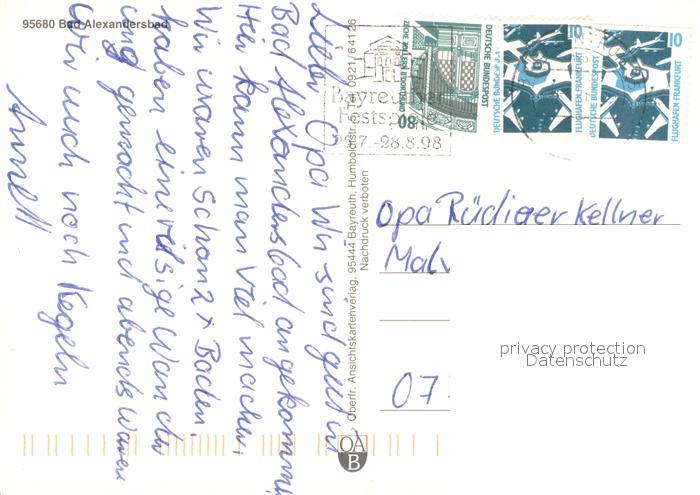 95680 Bad Alexandersbad
Lieber Opa Wir sind gut in
Bad Alexandersbad angekommen
Hier kann man viel machen.
Wir waren schon 2x Baden.
haben eine riesige Wander
ung gemacht und abends waren
Wir noch Kegeln
Annett
Oberfr. Ansichtskartenverlag, 95444 Bayreuth, Humboldtstr. Tel. 0921/64126
Nachdruck verboten
Bayreuther
Festspiele
7.-28.8.98
80
DEUTSCHE BUNDESPOST
ZECHE ZOLLERN II DORTMUND
10
DEUTSCHE BUNDESPOST
FLUGHAFEN FRANKFURT
10
DEUTSCHE BUNDESPOST
FLUGHAFEN FRANKFURT
Opa Rüdiger Kellner
07
privacy protection
Datenschutz
OA
B